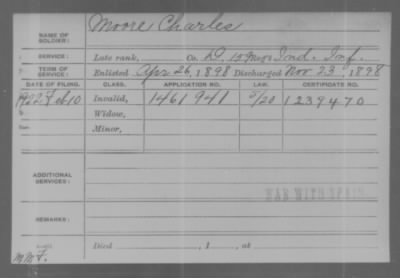 NAME OF SOLDIER: Moore Charles
SERVICE: Late rank, Co. D, 159 Regt Ind. Inf.
TERM OF SERVICE: Enlisted Apr 26, 1898 Discharged Nov 23, 1898
DATE OF FILING. CLASS. APPLICATION NO. LAW. CERTIFICATE NO.
1922 Feb 10 Invalid, 1461941 5/20 1239470
Widow,
Minor,
ADDITIONAL SERVICES:
WAR WITH SPAIN
REMARKS:
Died , 1 , at